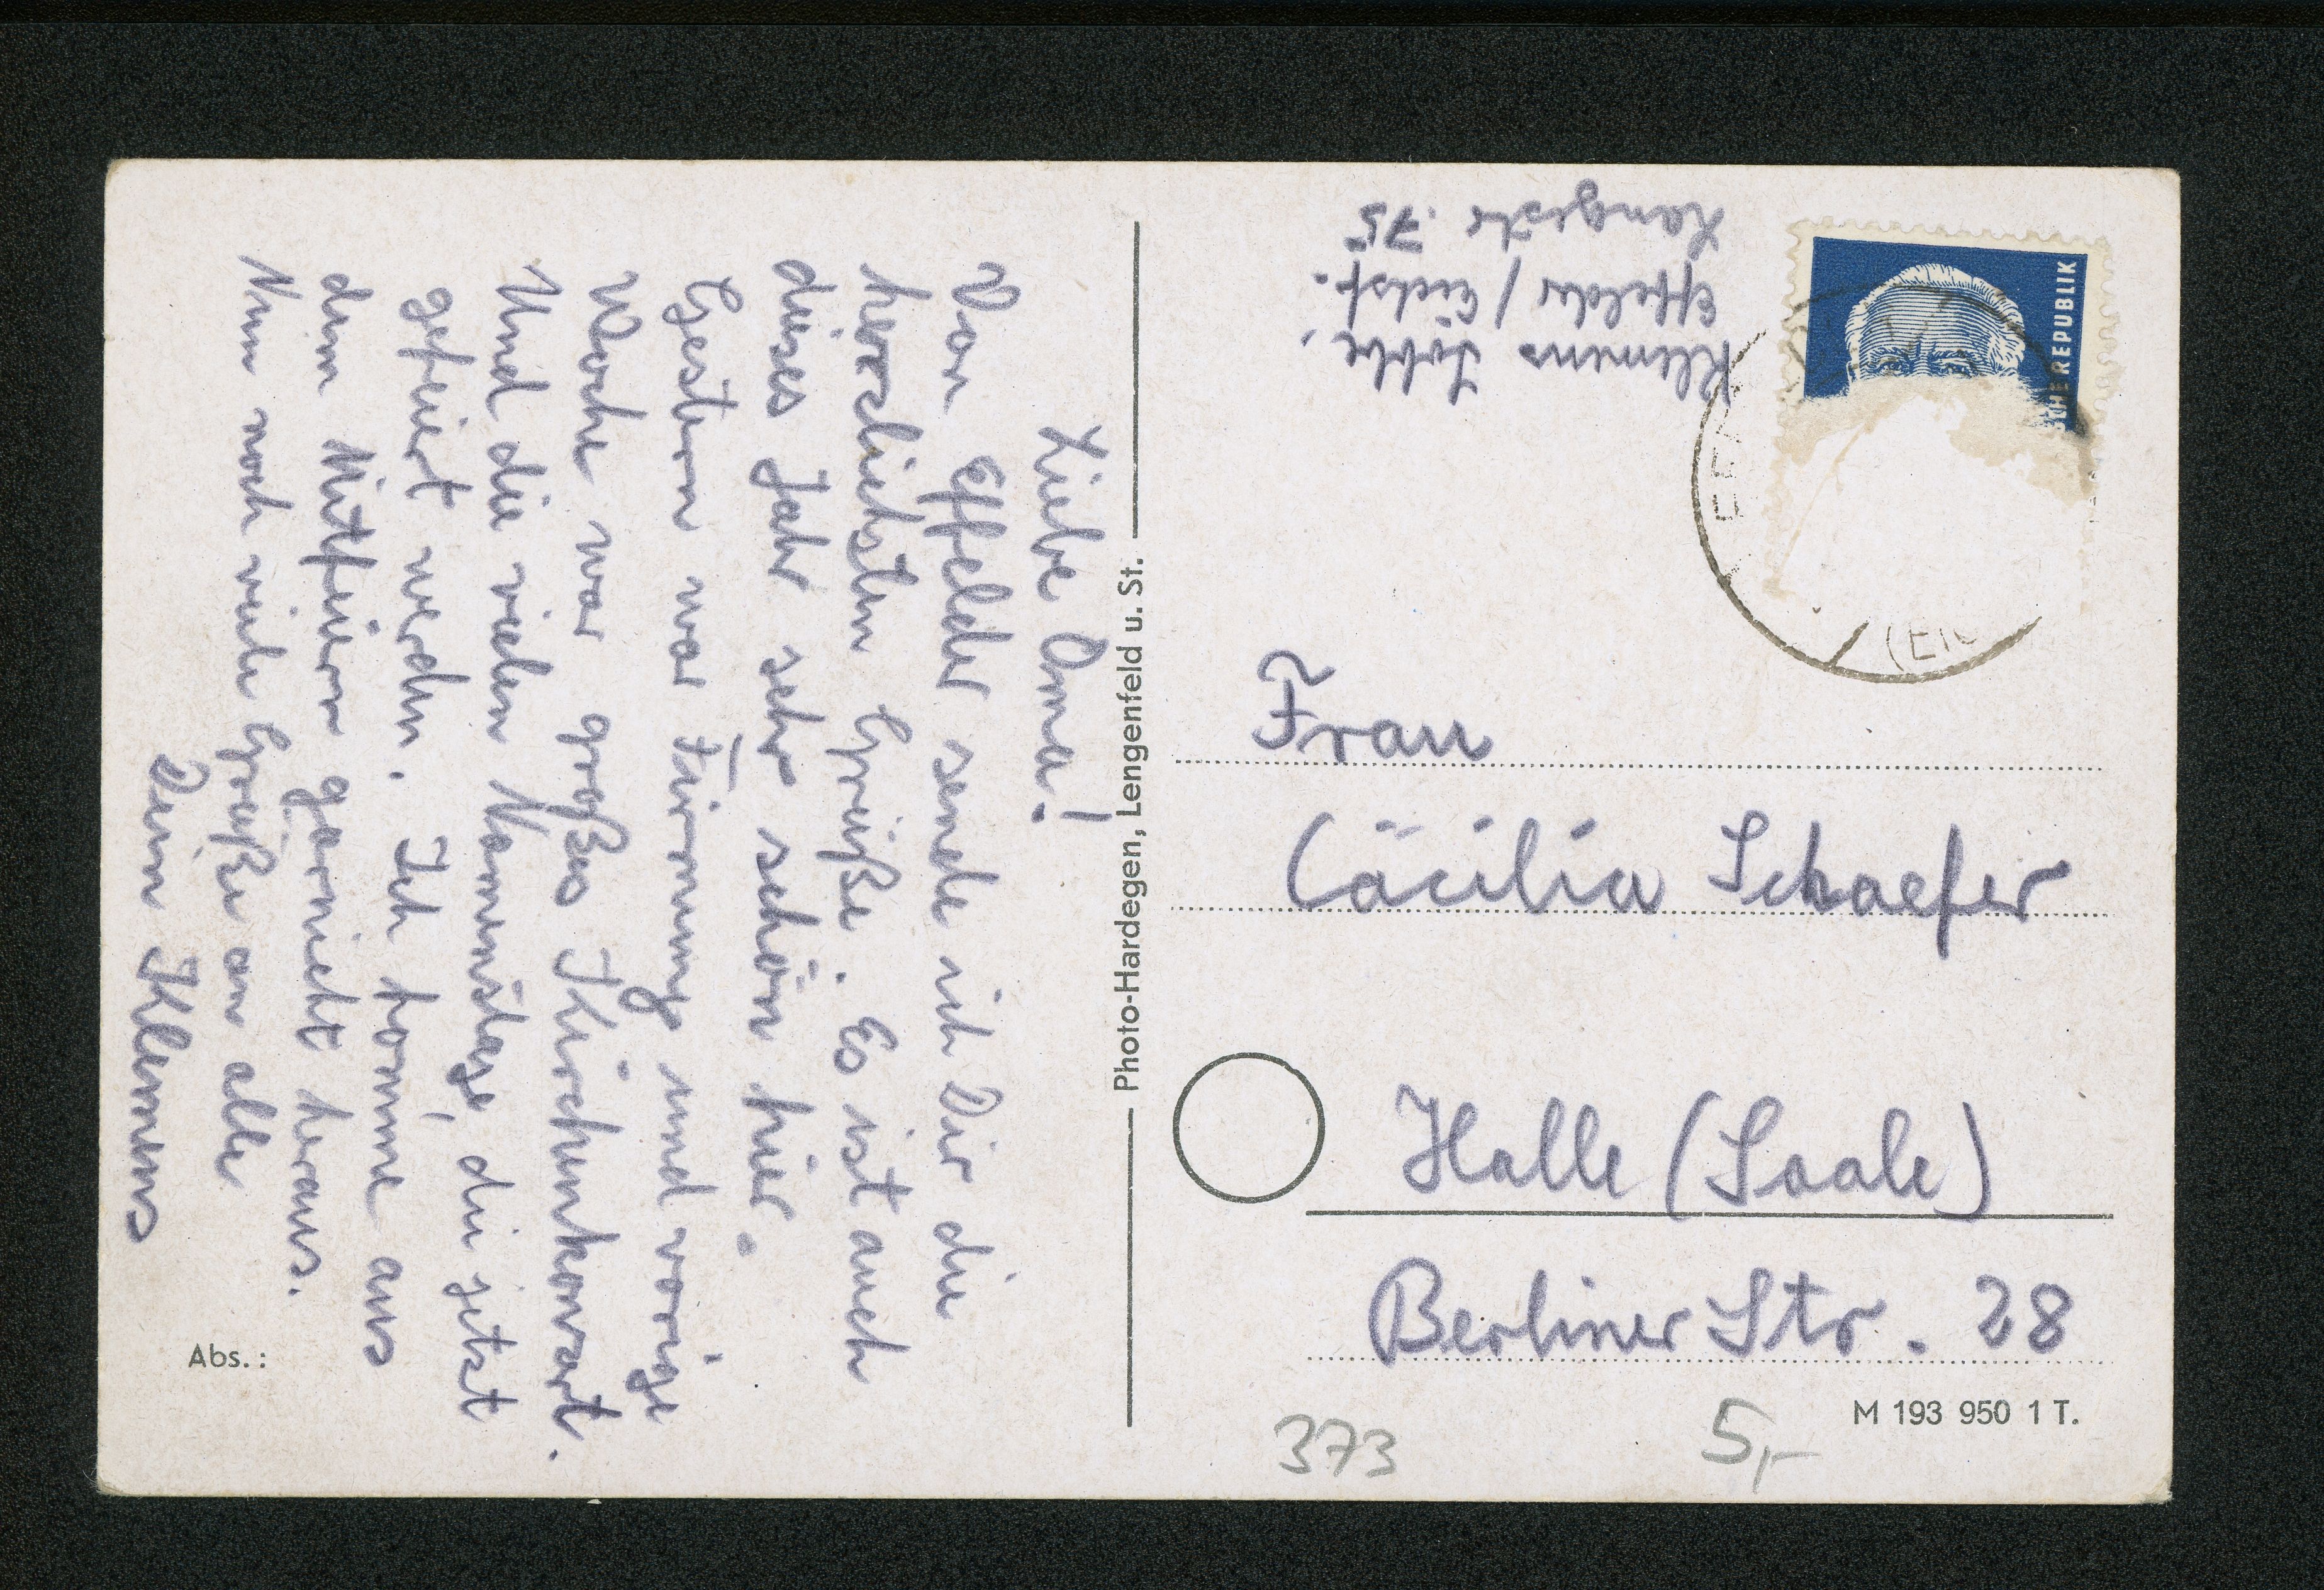 Liebe Oma!
Von Effelder sende ich Dir die
herzlichsten Grüße. Es ist auch
dieses Jahr sehr schön hier.
Gestern war Firmung und vorige
Woche war großes Kirchenkonzert.
Und die vielen Namenstage, die jetzt
gefeiert werden. Ich komme aus
dem Mitfeiern garnicht heraus.
Nun noch viele Grüße an alle
Dein Klemens
Abs.:
Photo-Hardegen, Lengenfeld u. St.
Klemens
Effelder / Eichsf.
Langestr. 75
CHE REPUBLIK
Frau
Cäcilia Schaefer
Halle (Saale)
Berliner Str. 28
M 193 950 1 T.
373
5,-